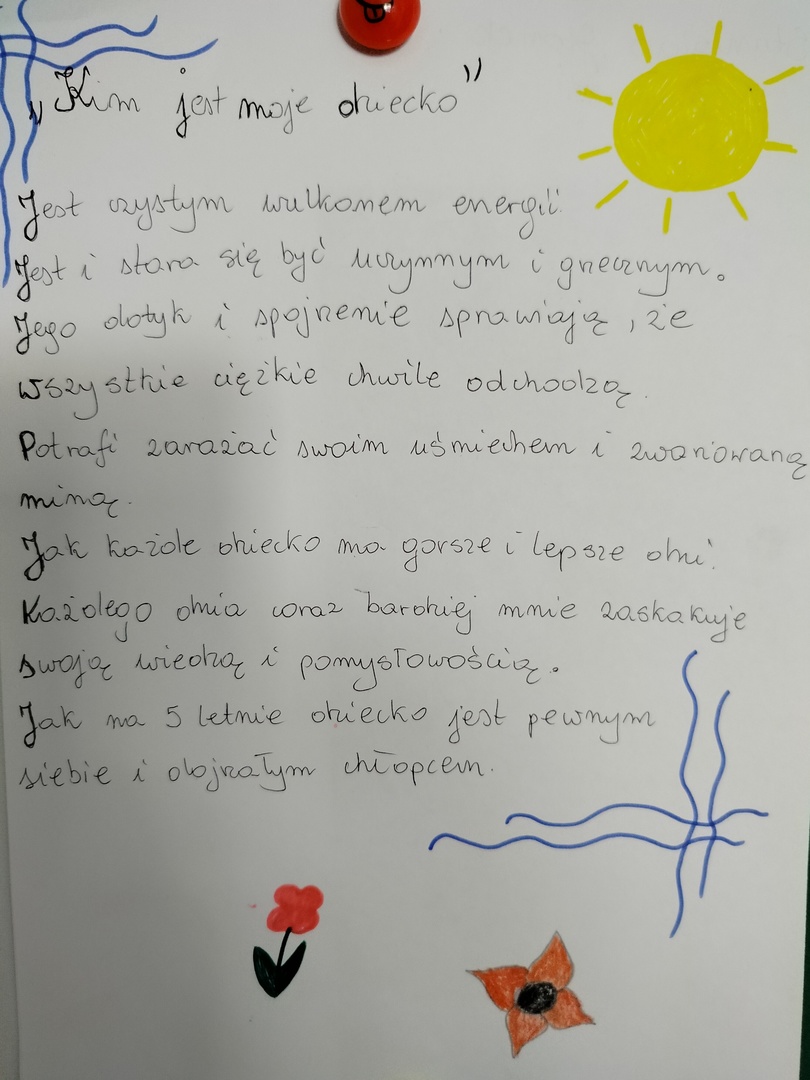 „Kim jest moje dziecko"
Jest czystym wulkanem energii.
Jest i stara się być uczynnym i grzecznym.
Jego dotyk i spojrzenie sprawiają, że
wszystkie ciężkie chwile odchodzą.
Potrafi zarażać swoim uśmiechem i zwariowaną
miną.
Jak każde dziecko ma gorsze i lepsze dni.
Każdego dnia coraz bardziej mnie zaskakuje
swoją wiedzą i pomysłowością.
Jak na 5 letnie dziecko jest pewnym
siebie i dojrzałym chłopcem.